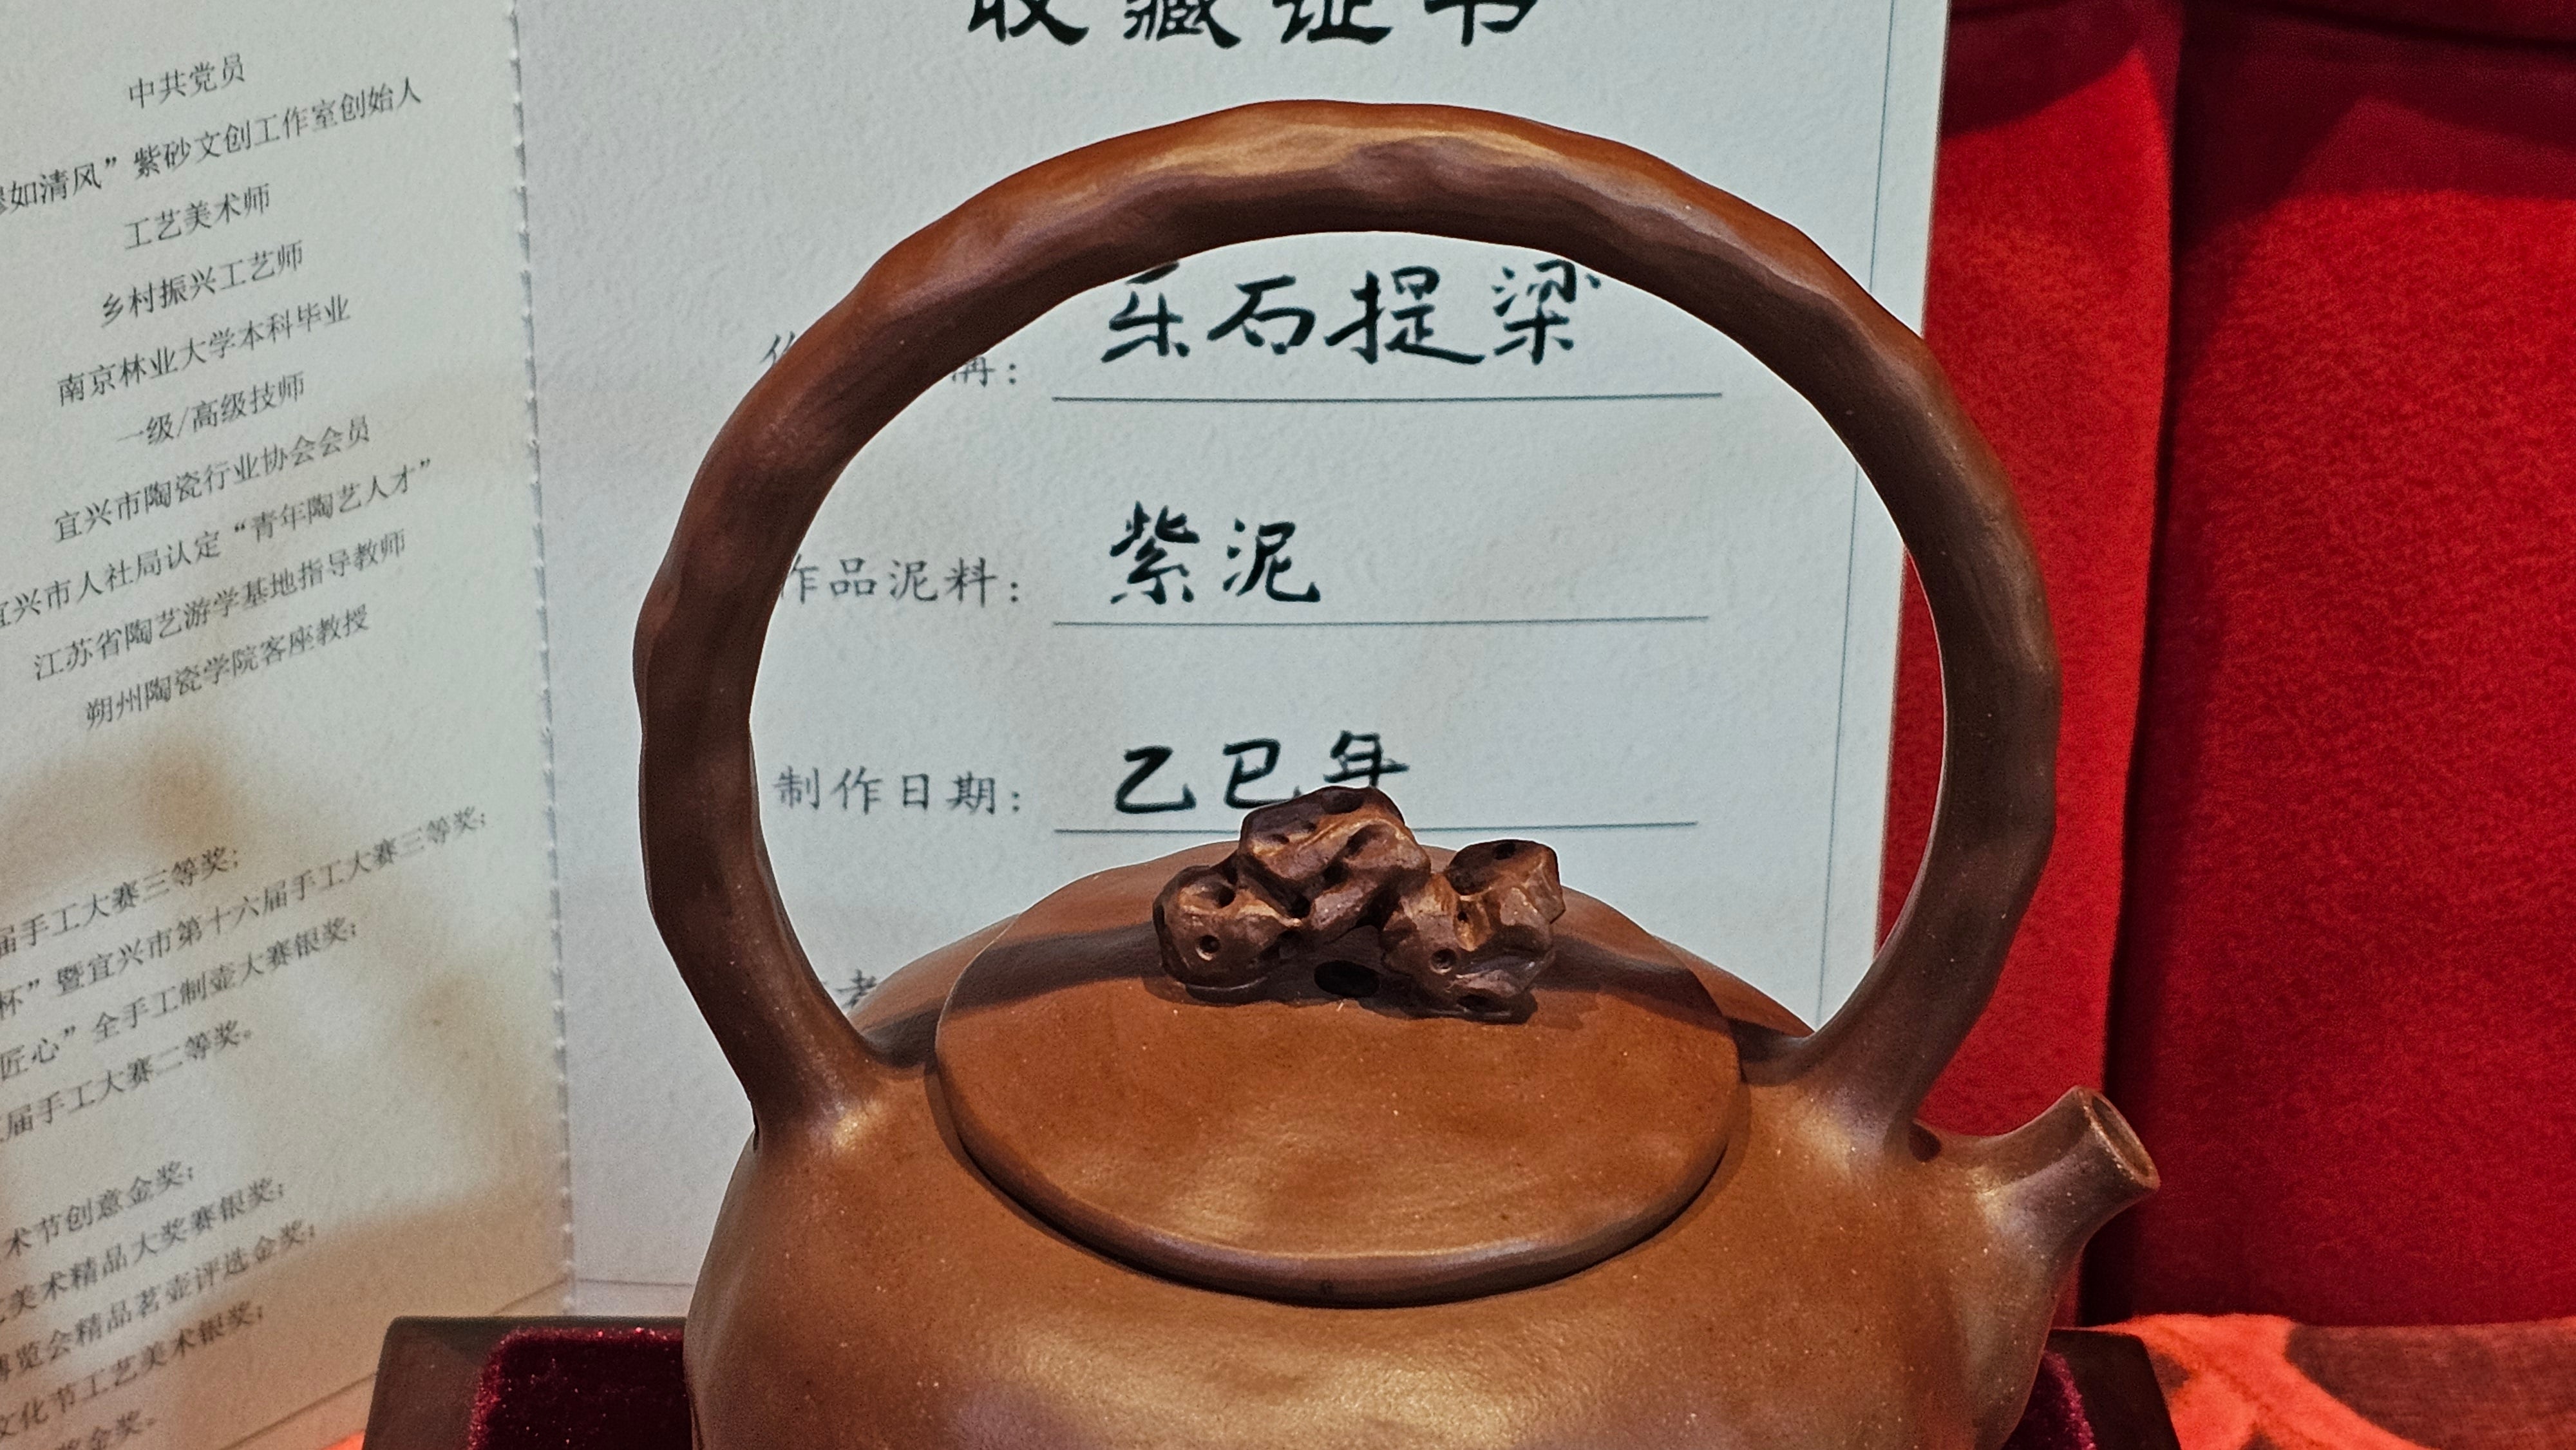 中共党员
如清风”紫砂文创工作室创始人
工艺美术师
乡村振兴工艺师
南京林业大学本科毕业
一级/高级技师
宜兴市陶瓷行业协会会员
宜兴市人社局认定“青年陶艺人才”
江苏省陶艺游学基地指导教师
朔州陶瓷学院客座教授
届手工大赛三等奖；
杯”暨宜兴市第十六届手工大赛三等奖；
匠心”全手工制壶大赛银奖；
届手工大赛二等奖。
术节创意金奖；
美术精品大奖赛银奖；
博览会精品茗壶评选金奖；
文化节工艺美术银奖；
金奖。
收藏证书
乐石提梁
作品泥料： 紫泥
制作日期： 乙巳年